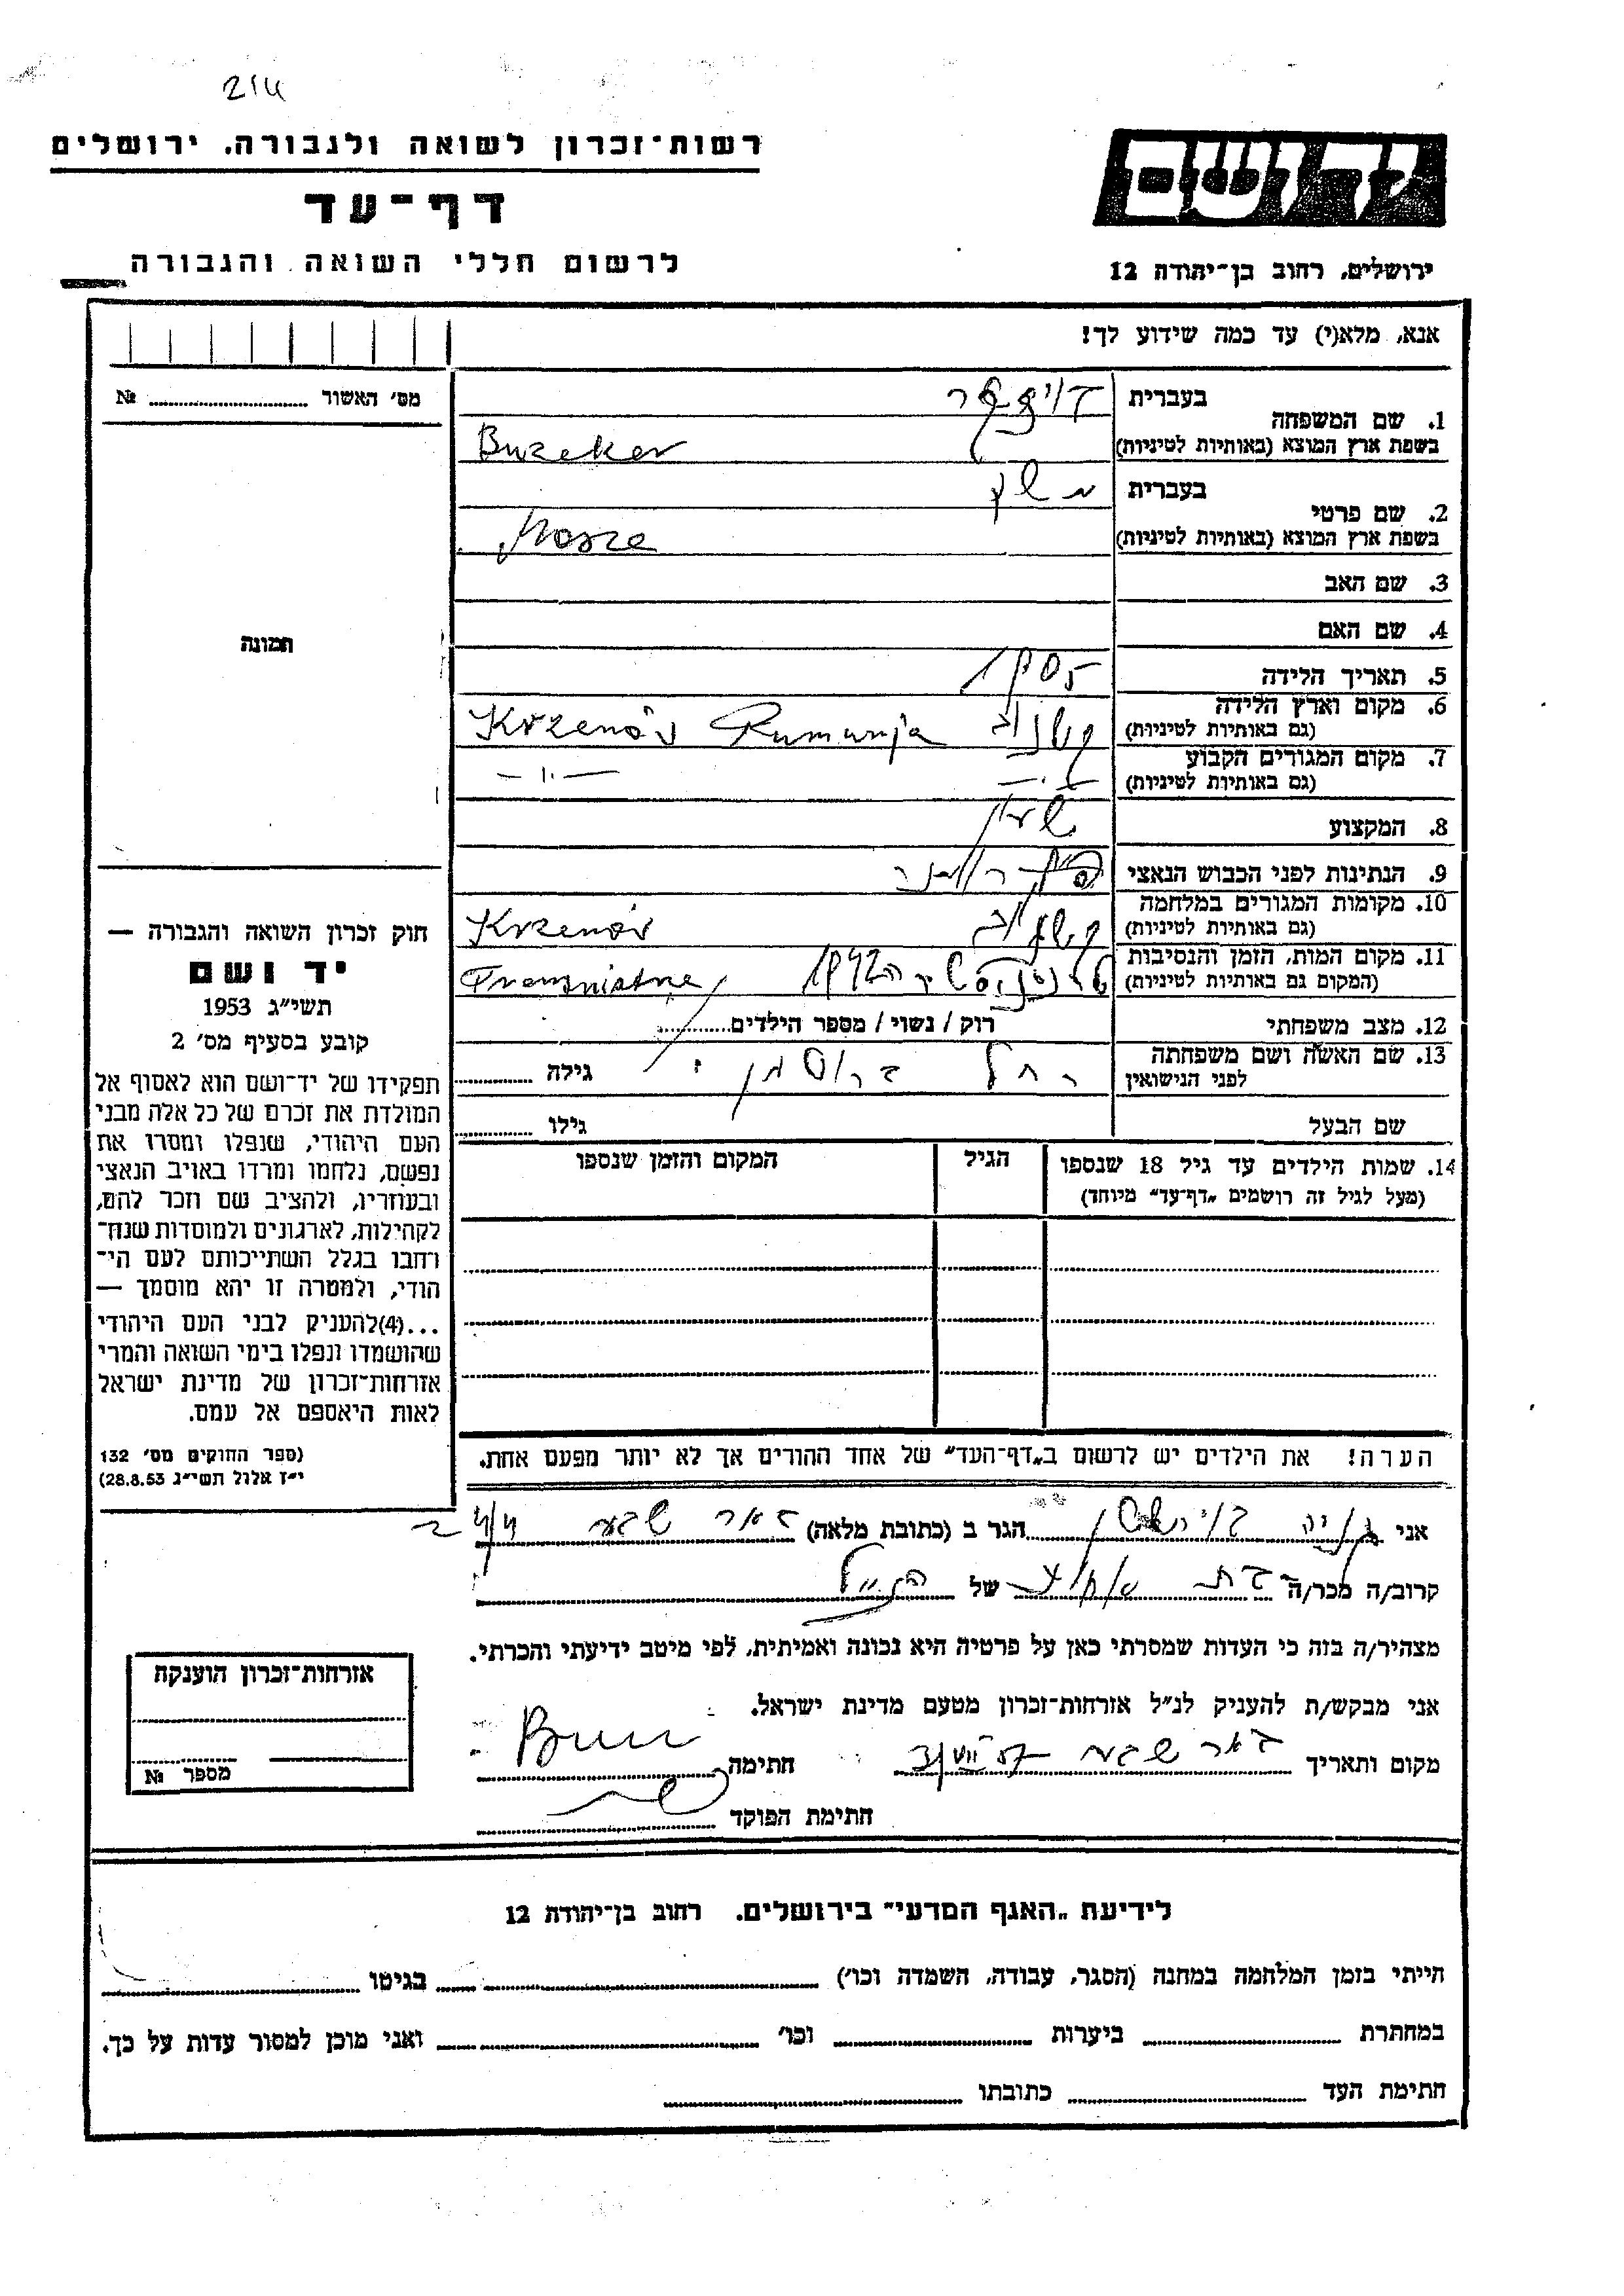 214
רשות־זכרון לשואה ולגבורה, ירושלים
דף־עד
לרשום חללי השואה והגבורה
יד ושם
ירושלים, רחוב בן־יהודה 12
אנא, מלא(י) עד כמה שידוע לך!
מס' האשור № 
1. שם המשפחה
בעברית
בשפת ארץ המוצא (באותיות לטיניות) Buzeker
2. שם פרטי
בעברית משה
בשפת ארץ המוצא (באותיות לטיניות) Mosze
3. שם האב
4. שם האם
תמונה
5. תאריך הלידה 1905
6. מקום וארץ הלידה
(גם באותיות לטיניות) Krzenów Rumunja
7. מקום המגורים הקבוע
(גם באותיות לטיניות) —"—
8. המקצוע
9. הנתינות לפני הכבוש הנאצי
10. מקומות המגורים במלחמה
(גם באותיות לטיניות) Krzenów
11. מקום המות, הזמן והנסיבות
(המקום גם באותיות לטיניות) 1942
12. מצב משפחתי רוק / נשוי / מספר הילדים
13. שם האשה ושם משפחתה
לפני הנישואין רחל גילה
שם הבעל גילו
14. שמות הילדים עד גיל 18 שנספו
(מעל לגיל זה רושמים „דף־עד" מיוחד)
הגיל
המקום והזמן שנספו
חוק זכרון השואה והגבורה —
יד ושם
תשי"ג 1953
קובע בסעיף מס' 2
תפקידו של יד־ושם הוא לאסוף אל
המולדת את זכרם של כל אלה מבני
העם היהודי, שנפלו ומסרו את
נפשם, נלחמו ומרדו באויב הנאצי
ובעוזריו, ולהציב שם וזכר להם,
לקהילות, לארגונים ולמוסדות שנח־
רחבו בגלל השתייכותם לעם הי־
הודי, ולמטרה זו יהא מוסמך —
...(4)להעניק לבני העם היהודי
שהושמדו ונפלו בימי השואה והמרי
אזרחות־זכרון של מדינת ישראל
לאות היאספם אל עמם.
(ספר החוקים מס' 132
י"ז אלול תשי"ג 28.8.53)
הערה! את הילדים יש לרשום ב„דף־העד" של אחד ההורים אך לא יותר מפעם אחת.
אני הגר ב (כתובת מלאה) באר שבע
קרוב/ה מכר/ה בת של הנ"ל
מצהיר/ה בזה כי העדות שמסרתי כאן על פרטיה היא נכונה ואמיתית, לפי מיטב ידיעתי והכרתי.
אני מבקש/ת להעניק לנ"ל אזרחות־זכרון מטעם מדינת ישראל.
מקום ותאריך באר שבע חתימה
חתימת הפוקד
אזרחות־זכרון הוענקה
מספר №
לידיעת „האגף המדעי" בירושלים, רחוב בן־יהודה 12
הייתי בזמן המלחמה במחנה (הסגר, עבודה, השמדה וכו') בגיטו
במחתרת ביערות וכו' ואני מוכן למסור עדות על כך.
חתימת העד כתובתו